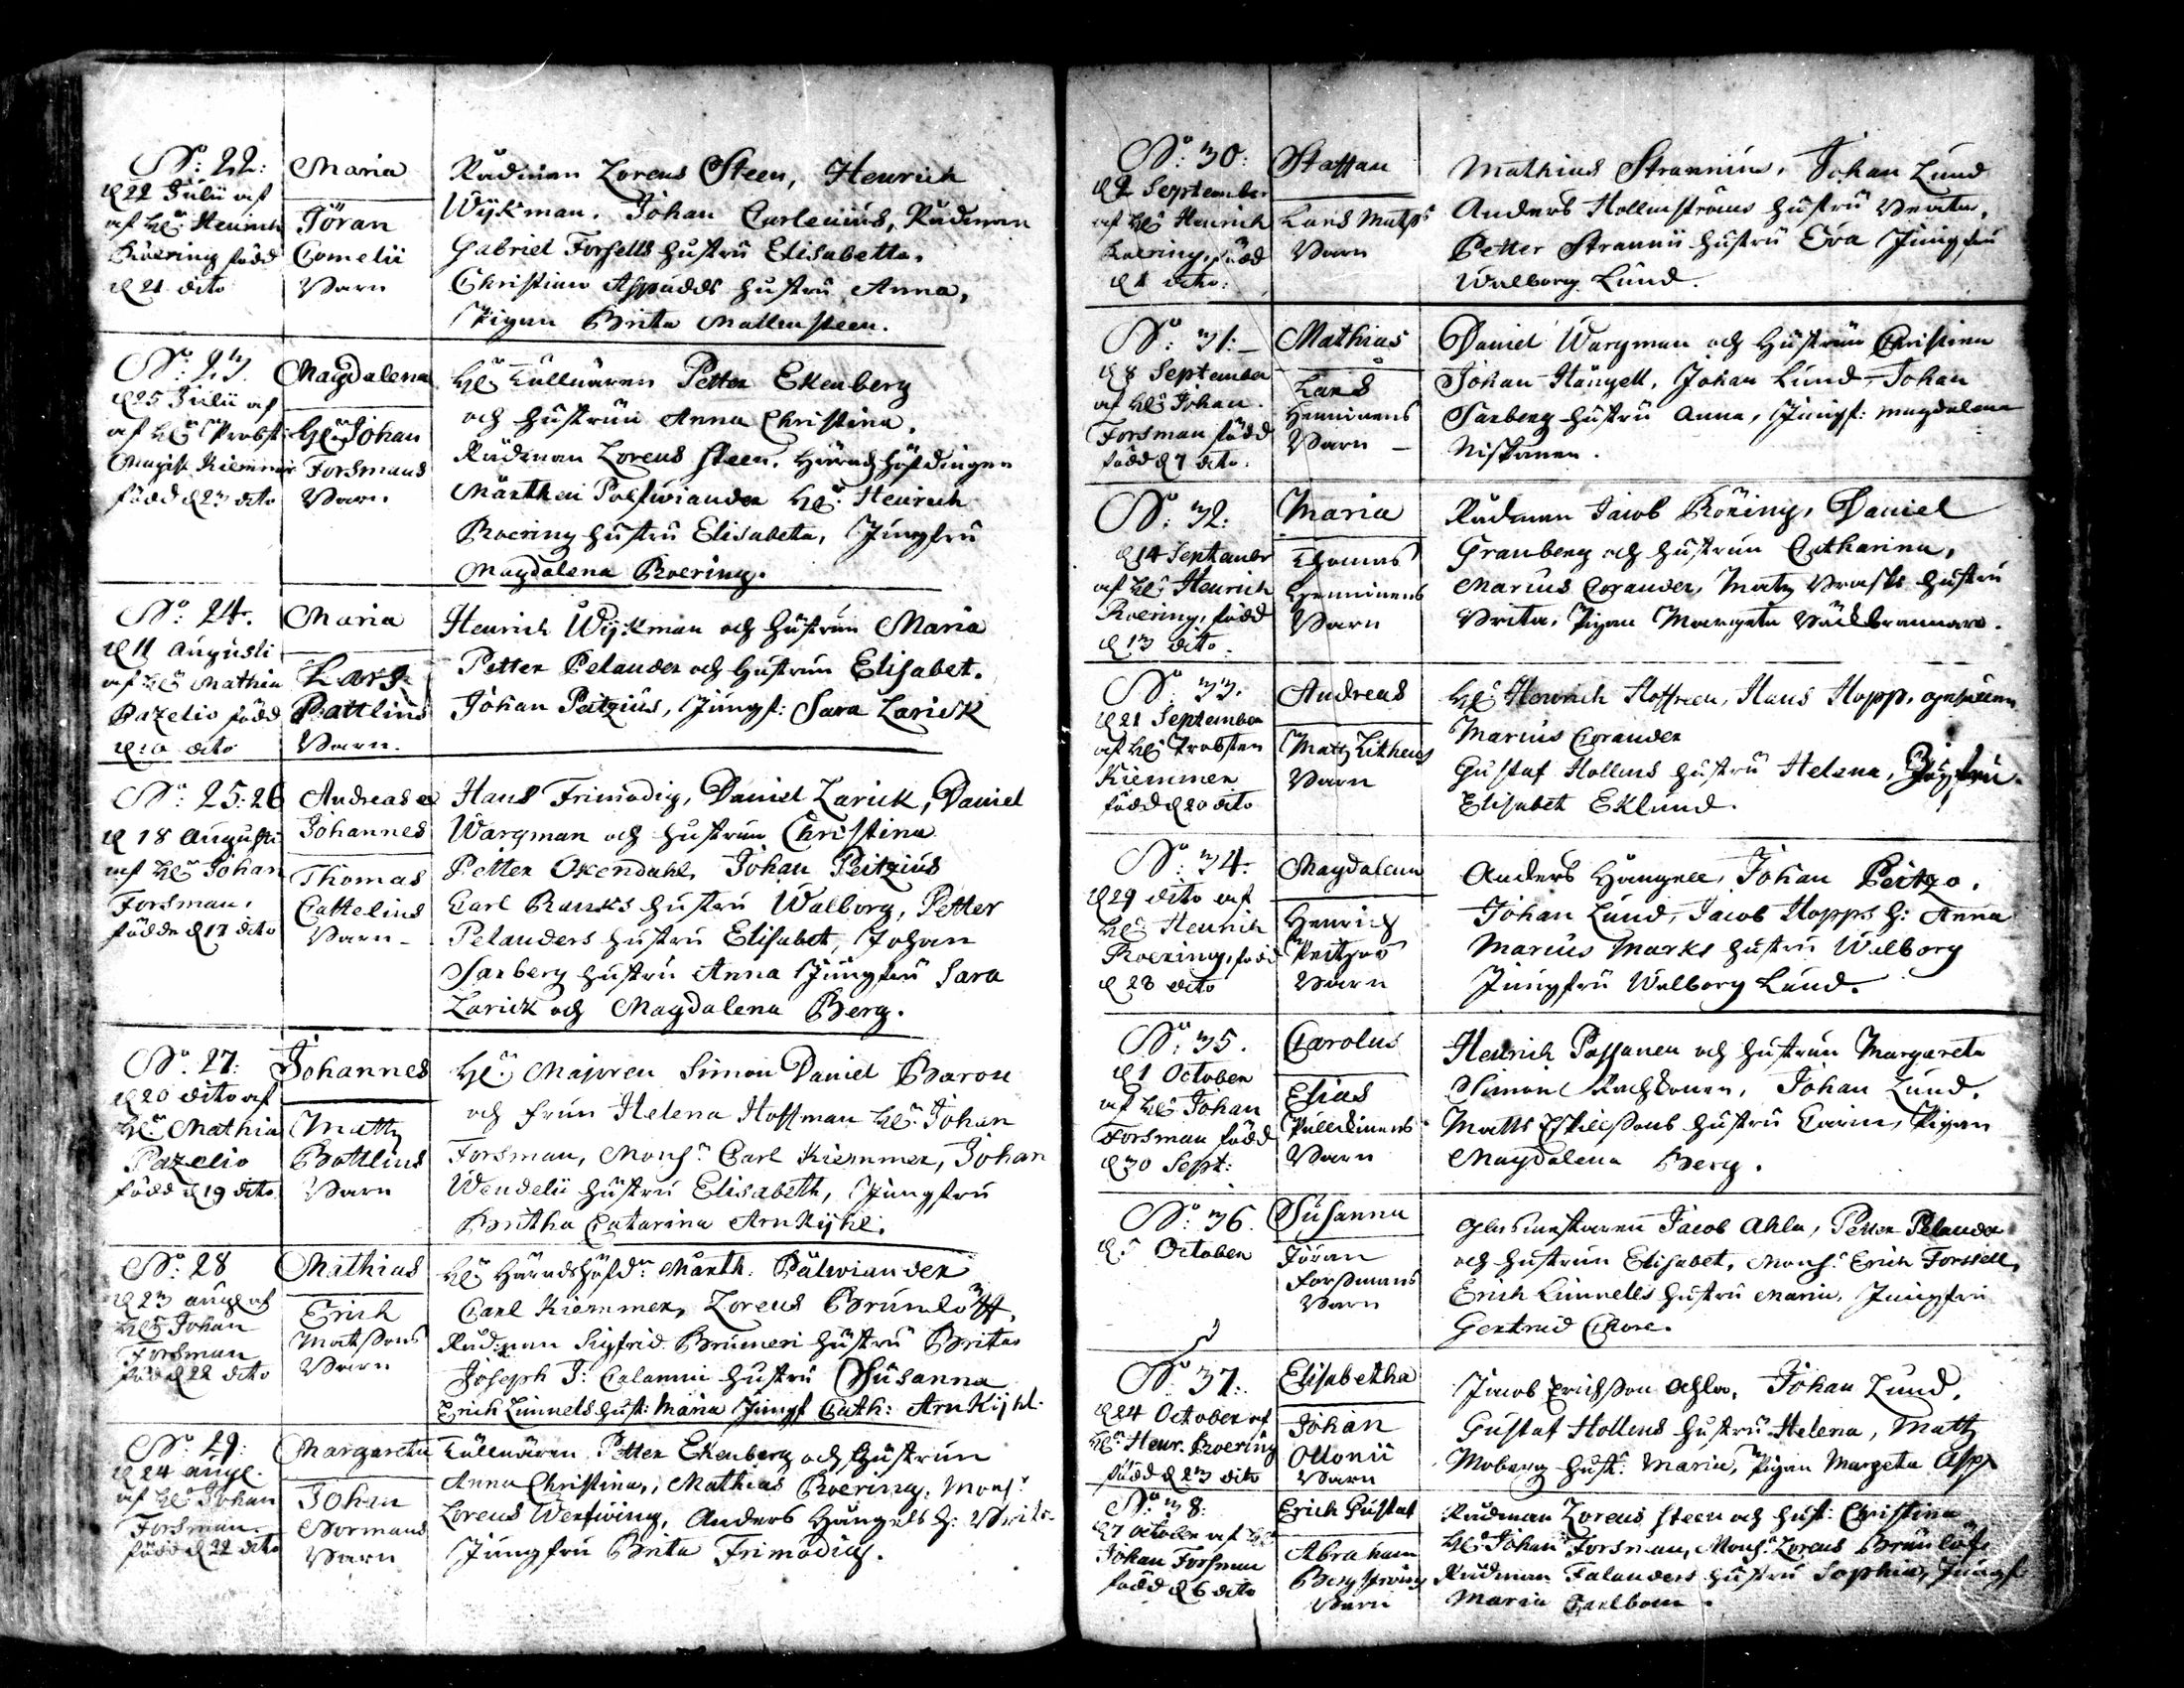 No: 22:
d 22 Julii af
af H:r Henrich
Roering född
d 21 dito
Maria
Jöran
Cornelii
Barn
Rådman Lorens Steen, Henrich
Wijkman, Johan Carlenius, Rådman
Gabriel Forsells hustru Elisabetta,
Christian Aspudds hustru Anna,
Pigan Brita Mallensteen.
No: 23.
d 25 Julii af
af H:r Probst
Magist. Kiemmer
född d 23 dito
Magdalena
H:r Johan
Forsmans
Barn.
H:r Tullnären Petter Ekenberg
och hustrun Anna Christina,
Rådman Lorens Steen, Häradshöfdingen
Märthen Polviander H:r Henrich
Roering hustru Elisabeta, Jungfru
Magdalena Roering.
No: 24.
d 11 Augusti
af H:r Mathia
Pazelio född
d 10 dito
Maria
Lars
Battlins
Barn.
Henrich Wijkman och hustrun Maria
Petter Pelander och hustrun Elisabet.
Johan Peitzius, Jungf: Sara Larick
No: 25: 26
d 18 Augusti
af H:r Johan
Forsman,
födde d 17 dito
Andreas
Johannes
Thomas
Cattelins
Barn
Hans Frimodig, Daniel Larick, Daniel
Wargman och hustrun Christina
Petter Oxendahl, Johan Peitzius
Carl Ranks hustru Walborg, Petter
Pelanders hustru Elisabet, Johan
Sarberg hustru Anna Jungfru Sara
Larick och Magdalena Berg.
No: 27:
d 20 dito af
H:r Mathia
Pazelio
född d 19 dito
Johannes
Mattz
Bottlins
Barn
H:r Majoren Simon Daniel Baron
och frun Helena Hoffman H:r Johan
Forsman, Mons:r Carl Kiemmer, Johan
Wendelii hustru Elisabeth, Jungfru
Britha Catarina Arnkijhl.
No: 28
d 23 aug af
H:r Johan
Forsman
född d 22 dito
Mathias
Erich
Matssons
Barn
H:r Häradshöfd:n Märth: Pålwiander
Carl Kiemmer, Lorens Brunlöff,
Rådman Sigfrid Brumeri hustru Brita
Joseph J: Calamnii hustru Susanna
Erich Linnels hust: Maria Jungf Cath: Arnkijhl.
No: 29:
d 24 aug.
af H:r Johan
Forsman
född d 22 dito
Margareta
Johan
Normans
Barn
Tullnären Petter Ekenberg och hustrun
Anna Christina, Mathias Roering, Mons:r
Lorens Wentwing, Anders Hångels h: Brita
Jungfru Brita Frimodig.
No: 30:
d 2 September
af H:r Henrich
Roering, född
d 1 dito:
Staffan
Lars Matss
Barn
Mathias Strannius, Johan Lund
Anders Hollmströms hustru Beata,
Petter Strannii hustru Eva Jungfru
Walborg Lund.
No: 31:
d 8 September
af H:r Johan
Forsman född
född d 7 dito.
Mathias
Lars
Henninens
Barn
Daniel Wargman och hustrun Christina
Johan Hångell, Johan Lund, Johan
Sarberg hustru Anna, Jungf: Magdalena
Niskanen.
No: 32:
d 14 September
af H:r Henrich
Roering, född
d 13 dito.
Maria
Thomas
Henninens
Barn
Rådman Jacob Röring, Daniel
Granberg och hustrun Catharina,
Marius Corander, Matz Brasks hustru
Brita, Pigan Margeta
No: 33.
d 21 September
af H:r Probsten
Kiemmer
född d 20 dito
Andreas
Matz Litheus
Barn
H:r Henrich Hoffreen, Hans Hopp,
Marius Corander
Gustaf Hollens hustru Helena, Jungfru
Elisabet Eklund.
No: 34:
d 29 dito af
H:r Henrich
Roering, född
d 28 dito
Magdalena
Henrich
Peitzos
Barn
Anders Hångell, Johan Peitzo,
Johan Lund, Jacob Hopps h: Anna
Marius Marks hustru Walborg
Jungfru Walborg Lund.
No: 35.
d 1 October
af H:r Johan
Forsman född
d 30 Sept:
Carolus
Elias
Pullckinens
Barn
Henrich Passanen och hustrun Margareta
Simon Rachkonen, Johan Lund,
Matts Eskillssons hustru Carin, Pigan
Magdalena Berg.
No: 36.
October
Susanna
Jöran
Forssmans
Barn
Glasmestaren Jacob Ahla, Petter Pelander
och hustrun Elisabet, Mons:r Erich Forssell,
Erich Linnells hustru Maria, Jungfru
Gertrud Chore.
No: 37:
d 24 October af
H:r Henr. Roering
född d 23 dito
Elisabetha
Johan
Ottonii
Barn
Jacob Erichsson Achla, Johan Lund,
Gustaf Hollens hustru Helena, Mattz
Moberg hust: Maria, Pigan Margeta Asp
No: 38:
d 7 October af H:r
Johan Forsman
född d 6 dito
Erich Gustaf
Abraham
Bergströms
Barn
Rådman Lorens Steen och hust: Christina
H:r Johan Forsman, Mons:r Lorens Brunlöf,
Rådman Falanders hustru Sophia, Jungf
Maria Carlbom.